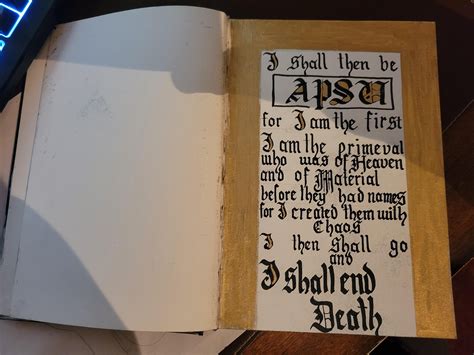 I shall then be
APSU
for I am the first
I am the primeval
who was of Heaven
and of Material
before they had names
for I created them with
Chaos
I then shall go
and
I shall end
Death